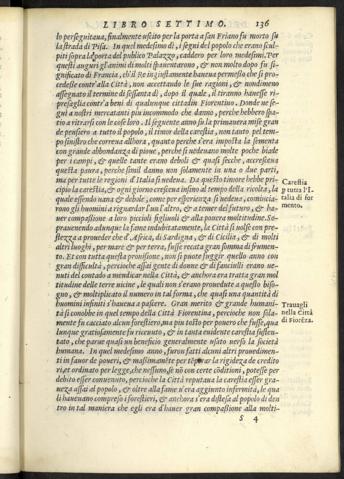 LIBRO SETTIMO. 136
lo perseguitaua, finalmente uscito per la porta a san Friano fu morto su
la strada di Pisa. In quel medesimo dì, i segni del popolo che erano scul-
piti sopra la porta del publico Palazzo, caddero per loro medesimi. Per
questi augurÿ gli animi di molti spauentarono, & non molto dopo fu si-
gnificato di Francia, ch'il Re ingiustamente haueua permesso che si pro-
cedesse contr'alla Città, non accettando le sue ragioni, & nondimeno
assegnato il termine di sessanta dì, dopo il quale, il tiranno hauesse ri-
presaglia contr'a beni di qualunque cittadin Fiorentino. Donde ne se-
guì a nostri mercatanti piu incommodo che danno, perche hebbero spa-
tio a ritrarsi con le cose loro. Il seguente anno su la primauera mise gran
de pensiero a tutto il popolo, il timor della carestia, non tanto pel tem-
po sinistro che correua allhora, quanto perche s'era imposta la sementa
con grande abbondanza di pioue, perche si uedeuano molte poche biade
per i campi, & quelle tante erano deboli & quasi secche, accresceua
questa paura, perche simil danno non solamente in una o due parti,
ma per tutte le regioni d'Italia si uedeua. Da questo timore hebbe prin-
cipio la carestia, & ogni giorno cresceua insino al tempo della ricolta, la
quale essendo uana & debole, come per esperienza si uedeua, comincia-
rono gli huomini a riguardar l'un l'altro, & a temer del futuro, & ha-
uer compassione a loro piccioli figliuoli & alla pouera moltitudine. So-
prauenendo adunque la fame indubitatamente, la Città si uolse con pre-
stezza a proueder che d'Africa, di Sardigna, & di Cicilia, & di molti
altri luoghi, per mare & per terra, fusse recata gran somma di frumen-
to. Et con tutta questa prouisione, non si potette fuggir quello anno con
gran difficultà, percioche assai gente di donne & di fanciulli erano ue-
nuti del contado a mendicar nella Città, & anchora era tratta gran mol
titudine delle terre uicine, le quali non s'erano prouedute a questo biso-
gno, & moltiplicato il numero in tal forma, che quasi una quantità di
huomini infiniti s'haueua a pascere. Gran merito & grande humani-
tà si conobbe in quel tempo della Città Fiorentina, percioche non sola-
mente fu cacciato alcun forestiero, ma piu tosto per pouero che fusse, qua
lunque gratiosamente fu riceuuto, & in tanta euidente carestia susten-
tato, che parue quasi un beneficio generalmente usato uerso la società
humana. In quel medesimo anno, furon fatti alcuni altri prouedimen-
ti in fauor de poueri, & massimamente per tēperar la rigidezza de credito
ri, et ordinato per legge, che nessuno, se nō con certe cōditioni, potesse per
debito esser conuenuto, percioche la Città reputaua la carestia esser gra-
uezza assai al popolo, & oltre alla fame s'era aggiunto infermità, le qua
li haueuano compreso i forestieri, & anchora s'era distesa al popolo di den
tro in tal maniera che egli era d'hauer gran compassione alla molti-
S 4
Carestia
p tutta l'I-
talia di for
mento.
Trauagli
nella Città
di Fiorēza.